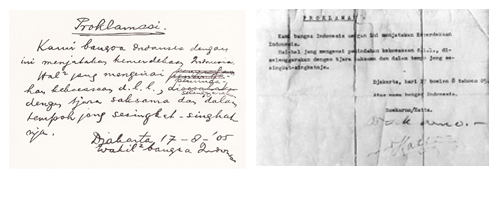 Proklamasi.
Kami bangsa Indonesia dengan
ini menjatakan kemerdekaan Indonesia.
Hal² jang mengenai
han kekoeasaan d.l.l.,
dengan tjara saksama dan dalam
tempoh jang sesingkat-singkat
nja.
Djakarta 17-8-'05
Wakil² bangsa Indonesia
PROKLAMASI
Kami bangsa Indonesia dengan ini menjatakan Kemerdekaan
Indonesia.
Hal-hal jang mengenai pemindahan kekoeasaan d.l.l., di-
selenggarakan dengan tjara saksama dan dalam tempo jang se-
singkat-singkatnja.
Djakarta, hari 17 boelan 8 tahoen 05
Atas nama bangsa Indonesia.
Soekarno/Hatta.